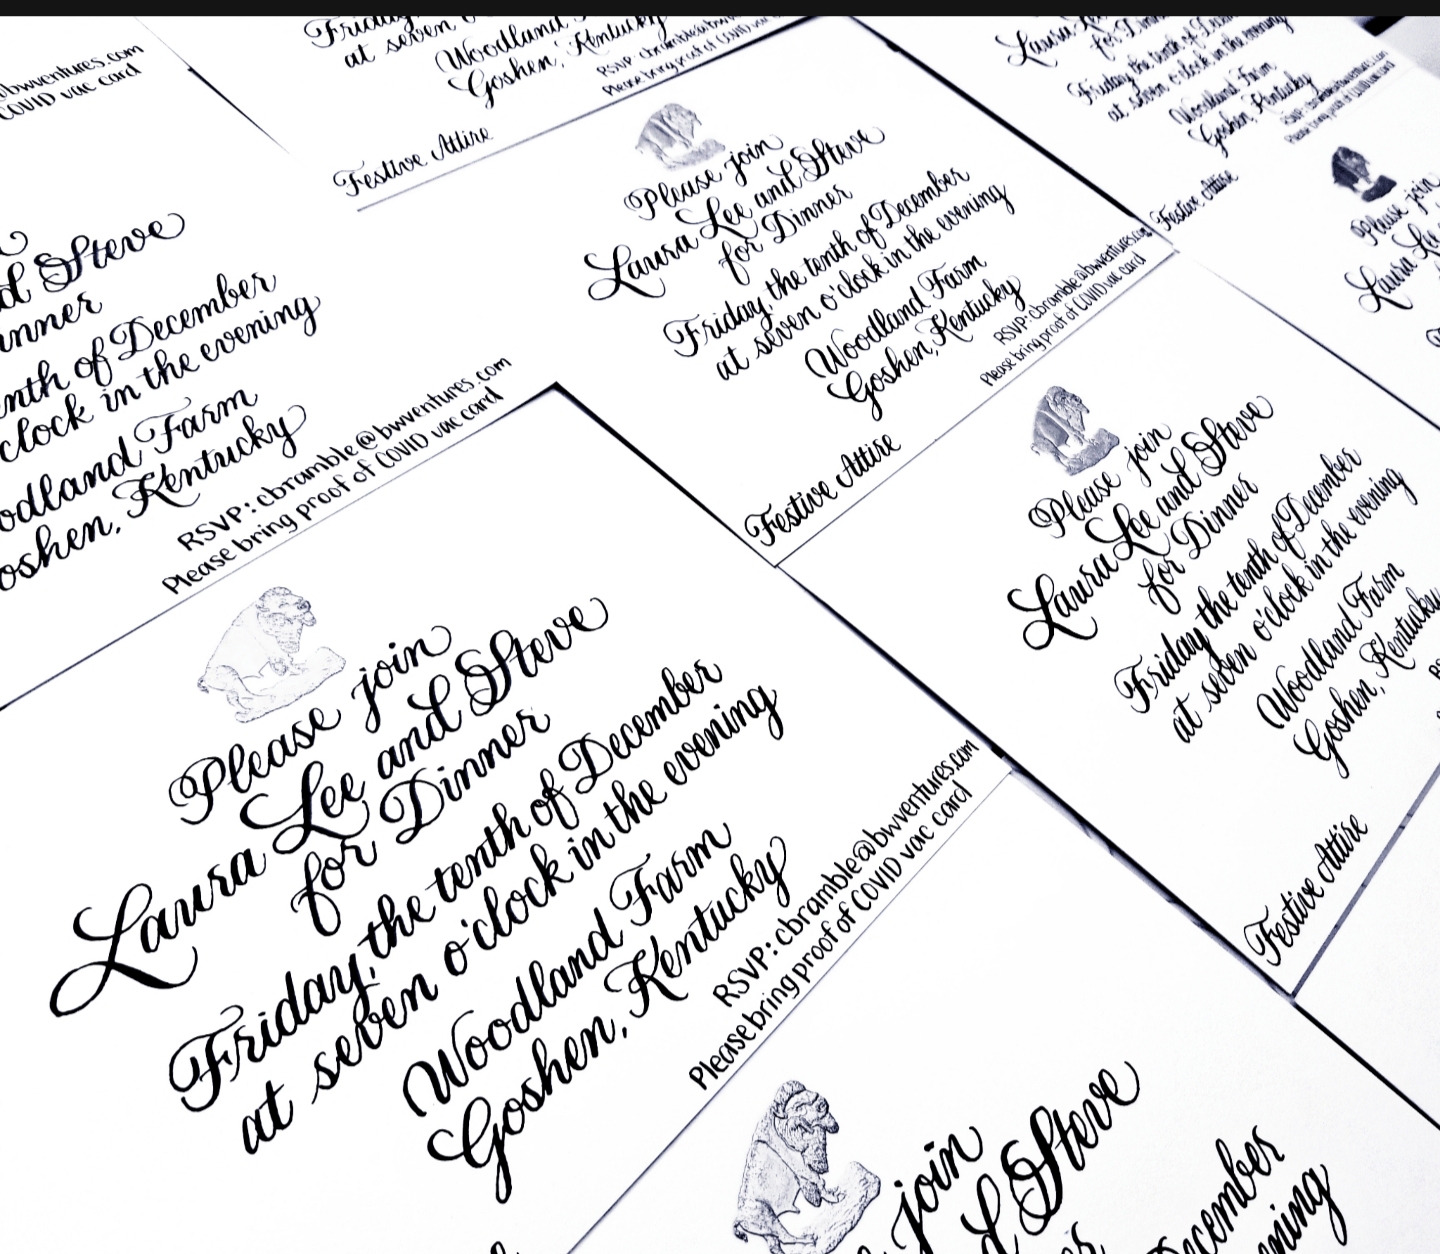 @bwventures.com
COVID vac card
Friday
at seven
Woodland
Goshen, Kentucky
RSVP: cbramble@bwventures.com
Please bring proof of COVID vac card
Festive Attire
Laura
for Dinner
Friday, the tenth of December
at seven o'clock in the evening
Woodland Farm
Goshen, Kentucky
Festive Attire
Please join
Laura Lee
Steve
nner
enth of December
clock in the evening
odland Farm
oshen, Kentucky
RSVP: cbramble@bwventures.com
Please bring proof of COVID vac card
Please join
Laura Lee and Steve
for Dinner
Friday, the tenth of December
at seven o'clock in the evening
Woodland Farm
Goshen, Kentucky
RSVP: cbramble@bwventures.com
Please bring proof of COVID vac card
Festive Attire
Please join
Laura Lee and Steve
for Dinner
Friday, the tenth of December
at seven o'clock in the evening
Woodland Farm
Goshen, Kentucky
Festive Attire
Please join
Laura Lee and Steve
for Dinner
Friday, the tenth of December
at seven o'clock in the evening
Woodland Farm
Goshen, Kentucky
RSVP: cbramble@bwventures.com
Please bring proof of COVID vac card
join
d Steve
December
ning